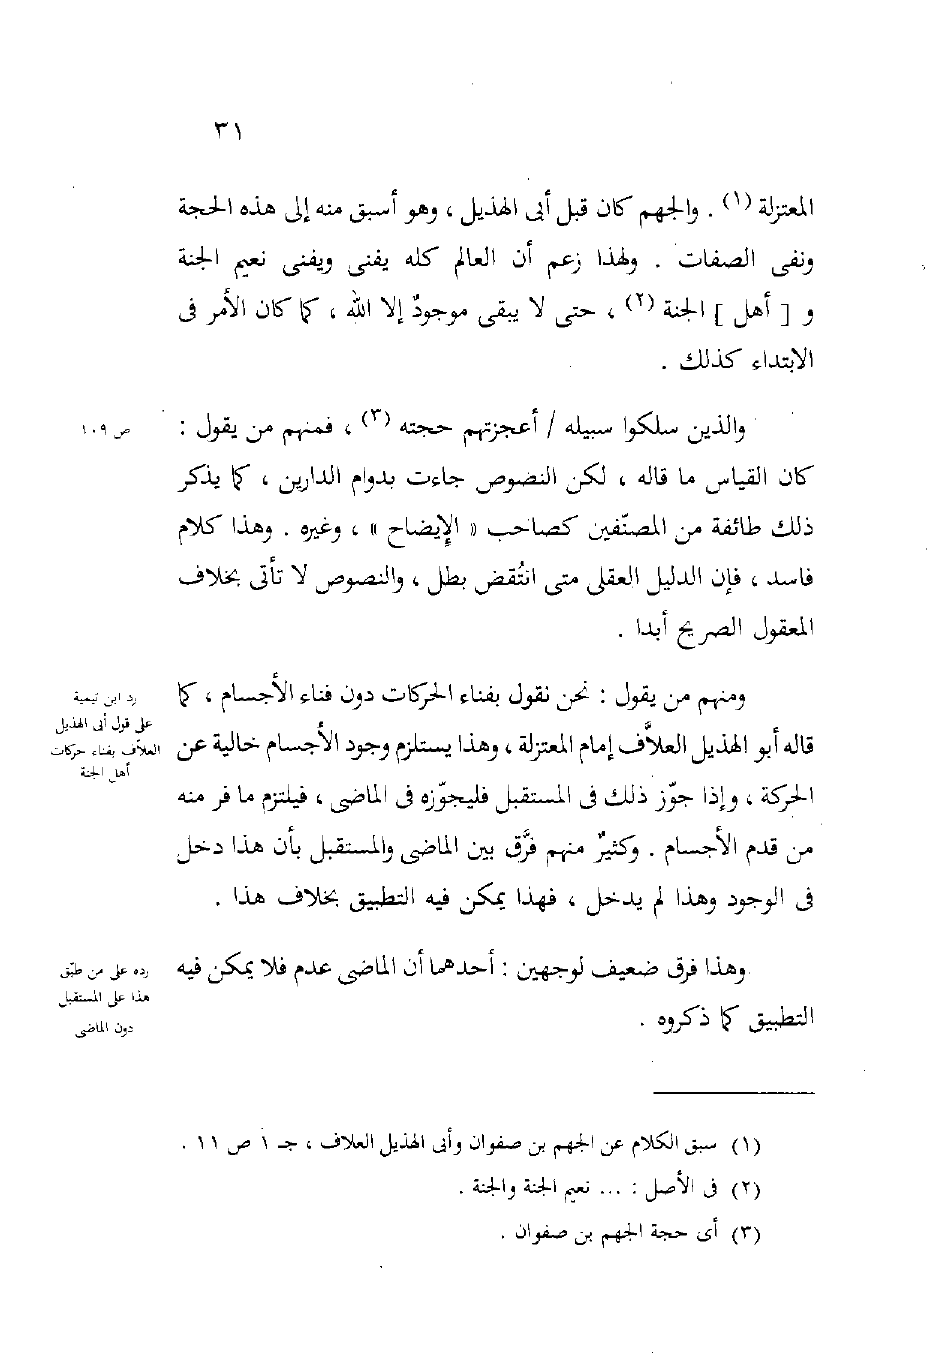 ٣١
المعتزلة (١) . والجهم كان قبل أبى الهذيل ، وهو أسبق منه إلى هذه الحجة
ونفى الصفات . ولهذا زعم أن العالم كله يفنى ويفنى نعيم الجنة
و [ أهل ] الجنة (٢) ، حتى لا يبقى موجودٌ إلا الله ، كما كان الأمر فى
الابتداء كذلك .
والذين سلكوا سبيله / أعجزتهم حجته (٣) ، فمنهم من يقول :
ص ١٠٩
كان القياس ما قاله ، لكن النصوص جاءت بدوام الدارين ، كما يذكر
ذلك طائفة من المصنّفين كصاحب « الإيضاح » ، وغيره . وهذا كلام
فاسد ، فإن الدليل العقلى متى انتُقض بطل ، والنصوص لا تأتى بخلاف
المعقول الصريح أبدا .
ومنهم من يقول : نحن نقول بفناء الحركات دون فناء الأجسام ، كما
قاله أبو الهذيل العلاَّف إمام المعتزلة ، وهذا يستلزم وجود الأجسام خالية عن
الحركة ، وإذا جوّز ذلك فى المستقبل فليجوّزه فى الماضى ، فيلتزم ما فر منه
من قدم الأجسام . وكثيرٌ منهم فرَّق بين الماضى والمستقبل بأن هذا دخل
فى الوجود وهذا لم يدخل ، فهذا يمكن فيه التطبيق بخلاف هذا .
رد ابن تيمية
على قول أبى الهذيل
العلاف بفناء حركات
أهل الجنة
وهذا فرق ضعيف لوجهين : أحدهما أن الماضى عدم فلا يمكن فيه
التطبيق كما ذكروه .
رده على من طبّق
هذا على المستقبل
دون الماضى
(١) سبق الكلام عن الجهم بن صفوان وأبى الهذيل العلاف ، جـ ١ ص ١١ .
(٢) فى الأصل : ... نعيم الجنة والجنة .
(٣) أى حجة الجهم بن صفوان .